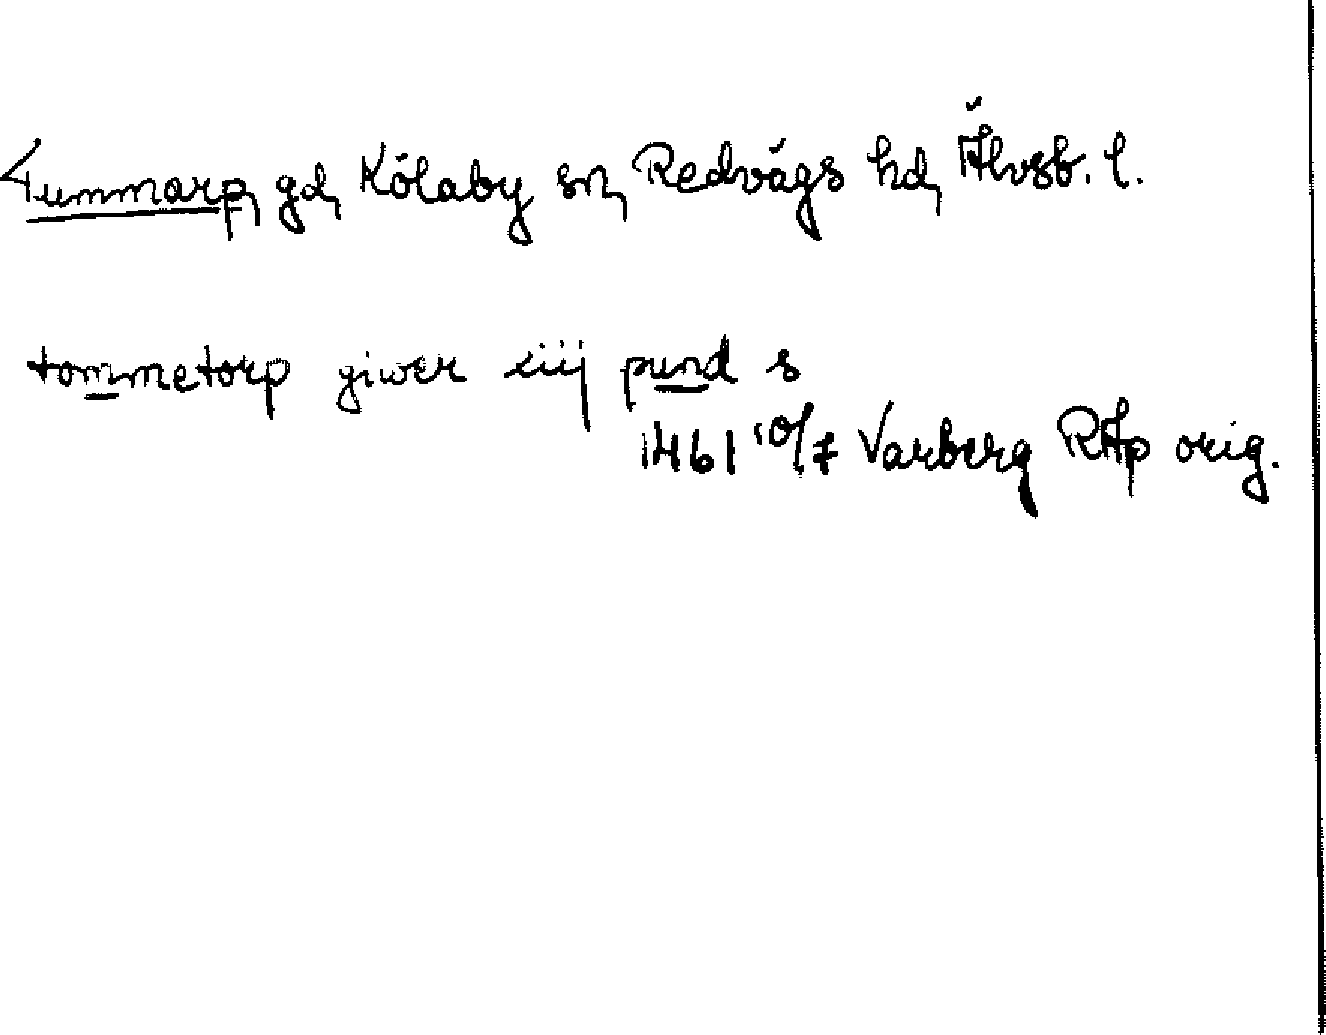 Tummarp, gd, Kölaby sn, Redvägs hd, Älvsb. l.
tommetorp giwer iiij pund s
1461 10/7 Varberg RAp orig.